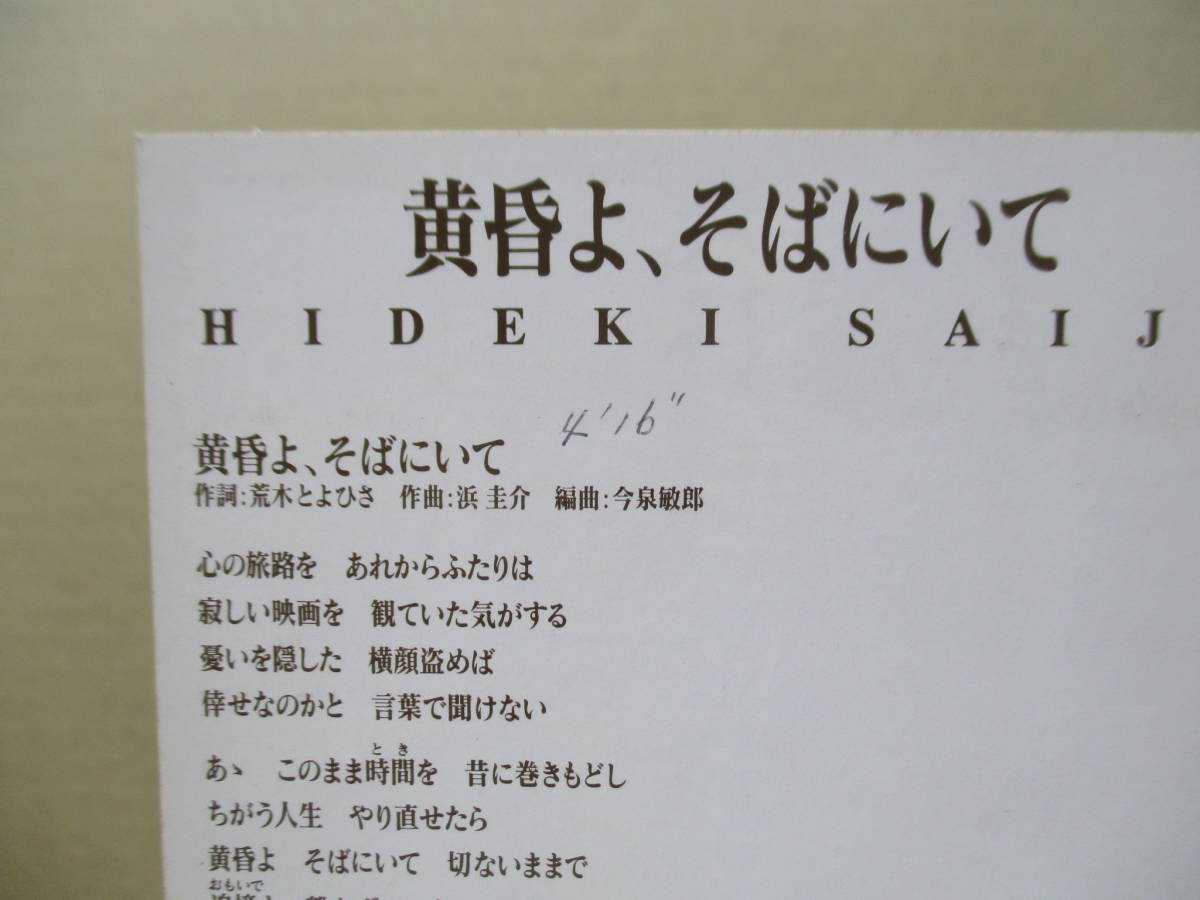 黄昏よ、そばにいて
HIDEKI SAIJ
4'16"
黄昏よ、そばにいて
作詞:荒木とよひさ 作曲:浜 圭介 編曲:今泉敏郎
心の旅路を あれからふたりは
寂しい映画を 観ていた気がする
憂いを隠した 横顔盗めば
倖せなのかと 言葉で聞けない
とき
あゝ このまま時間を 昔に巻きもどし
ちがう人生 やり直せたら
黄昏よ そばにいて 切ないままで
おもいで